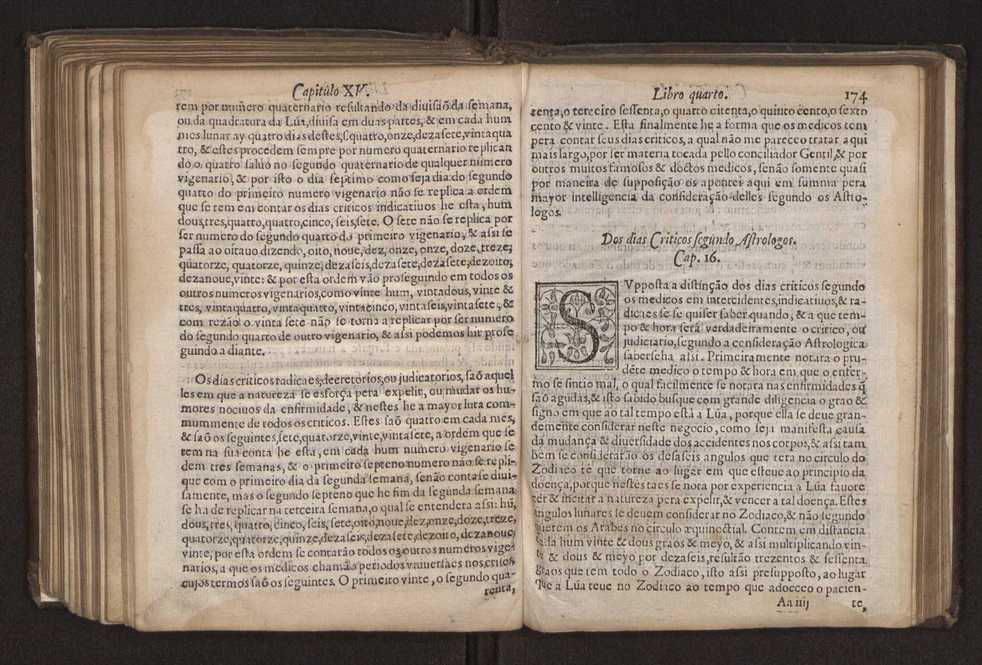 Capitulo XV.
rem por numero quaternario resultando da divisaõ da semana,
ou da quadratura da Lũa, diuisa em duas partes, & em cada hum
mes lunar ay quatro dias destes, s. quatro, onze, dezasete, vintaqua
tro, & estes procedem sempre por numero quaternario replican
do o quatro saluo no segundo quaternario de qualquer numero
vigenario, & por isto o dia septimo como seja dia do segundo
quarto do primeiro numero vigenario não se replica a ordem
que se tem em contar os dias criticos indicatiuos he esta, hum
dous, tres, quatro, quatro, cinco, seis, sete. O sete não se replica por
ser numero do segundo quarto do primeiro vigenario, & assi se
passa ao oitauo dizendo, oito, noue, dez, onze, onze, doze, treze,
quatorze, quatorze, quinze, dezaseis, dezasete, dezasete, dezoito,
dezanoue, vinte: & por esta ordem vão proseguindo em todos os
outros numeros vigenarios, como vinte hum, vintadous, vinte &
tres, vintaquatro, vintaquatro, vintacinco, vintaseis, vintasete, &
com rezão o vinta sete não se torna a replicar por ser numero
do segundo quarto de outro vigenario, & assi podemos hir prose
guindo a diante.
Os dias criticos radicaes, decretorios, ou judicatorios, saõ aquel
les em que a natureza se esforça pera expelir, ou mudar os hu-
mores nociuos da enfirmidade, & nestes he a mayor luta com-
mummente de todos os criticos. Estes saõ quatro em cada mes,
& saõ os seguintes, sete, quatorze, vinte, vintasete, a ordem que se
tem na sua conta he esta, em cada hum numero vigenario se
dem tres semanas, & o primeiro septeno numero não se repli-
que com o primeiro dia da segunda semana, senão contase diui-
samente, mas o segundo septeno que he fim da segunda semana
se ha de replicar na terceira semana, o qual se entendera assi: hũ,
dous, tres, quatro, cinco, seis, sete, oito, noue, dez, onze, doze, treze,
quatorze, quatorze, quinze, dezaseis, dezasete, dezoito, dezanoue,
vinte, por esta ordem se contarão todos os outros numeros vige-
narios, a que os medicos chamão periodos vniuersaes nos, crises
cujos termos saõ os seguintes. O primeiro vinte, o segundo qua-
renta,
Libro quarto.
174
renta, o terceiro sessenta, o quarto oitenta, o quinto cento, o sexto
cento & vinte. Esta finalmente he a forma que os medicos tem
pera contar seus dias criticos, a qual não me pareceo tratar a qui
mais largo, por ser materia tocada pello conciliador Gentil, & por
outros muitos famosos & doctos medicos, senão somente quasi
por maneira de supposição os apontei aqui em summa pera
mayor intelligencia da consideração delles segundo os Astro-
logos.
Dos dias Criticos segundo Astrologos.
Cap. 16.
SVpposta a distinção dos dias criticos segundo
os medicos em intercidentes, indicatiuos, & ra-
dicaes se se quiser saber quando, & a que tem-
po & hora será verdadeiramente o critico, ou
judiciario, segundo a consideração Astrologica
saberseha assi. Primeiramente notara o pru-
dẽte medico o tempo & hora em que o enfer-
mo se sintio mal, o qual facilmente se notara nas enfirmidades q̃
saõ agudas, & isto sabido busque com grande diligencia o grao &
signo em que ao tal tempo està a Lũa, porque ella se deue gran-
demente considerar neste negocio, como seja manifesta causa
da mudança & diuersidade dos accidentes nos corpos, & assi tam
bem se considerarão os desaseis angulos que tera no circulo do
Zodiaco tè que torne ao lugar em que esteue ao principio da
doença, porque nestes taes se nota por experiencia a Lũa fauore
cer & incitar a natureza pera expelir, & vencer a tal doença. Estes
angulos lunares se deuem considerar no Zodiaco, & não segundo
quierem os Arabes no circulo æquinoctial. Contem em distancia
cada hum vinte & dous graos & meyo, & assi multiplicando vin-
te & dous & meyo por dezaseis, resultão trezentos & sessenta
graos que tem todo o Zodiaco, isto assi presupposto, ao lugar
que a Lũa teue no Zodiaco ao tempo que adoeceo o pacien-
Aa iiij te,